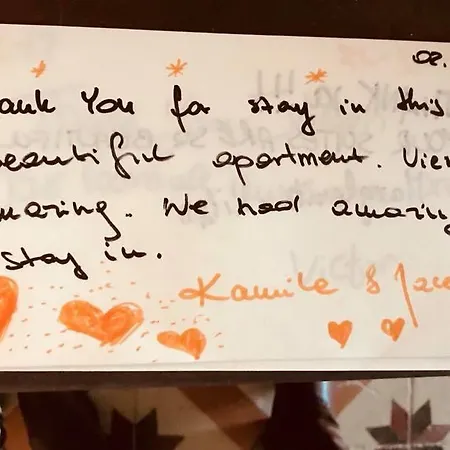 02.
ank You for stay in this
beautiful apartment. View
mazing. We had amazing
stay in.
Kamile &